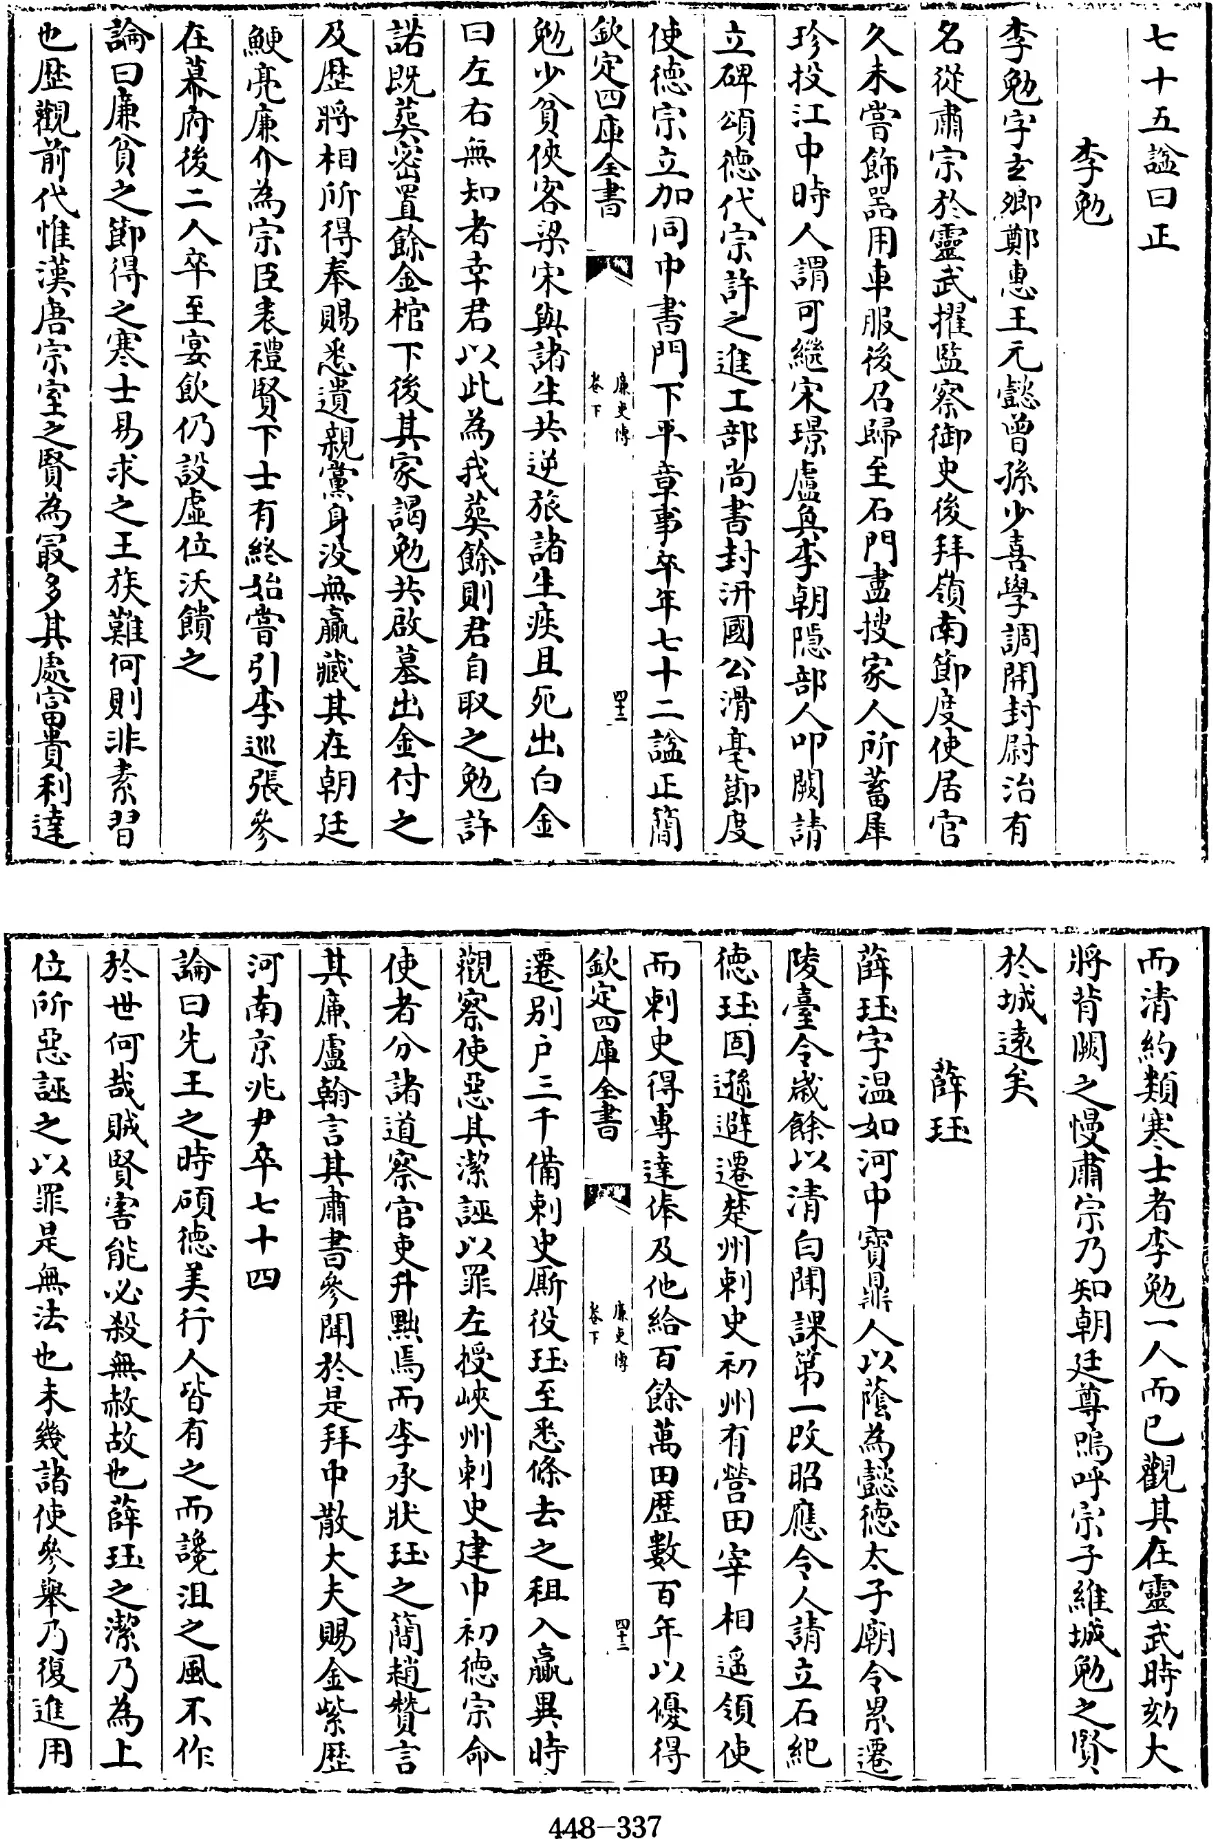 七十五諡曰正
李勉
李勉字玄卿鄭惠王元懿曾孫少喜學調開封尉治有
名從肅宗於靈武擢監察御史後拜嶺南節度使居官
久未嘗飾器用車服後召歸至石門盡搜家人所蓄犀
珍投江中時人謂可繼宋璟盧奐李朝隠部人叩闕請
立碑頌德代宗許之進工部尚書封汧國公滑亳節度
使德宗立加同中書門下平章事卒年七十二諡正簡
欽定四庫全書
廉吏傳
卷下
四十二
勉少貧俠客梁宋與諸生共逆旅諸生疾且死出白金
曰左右無知者幸君以此為我葬餘則君自取之勉許
諾既葬密置餘金棺下後其家謁勉共啟墓出金付之
及歴將相所得奉賜悉遺親黨身没無羸藏其在朝廷
鯁亮廉介為宗臣表禮賢下士有終始嘗引李巡張參
在幕府後二人卒至宴飲仍設虛位沃饋之
論曰廉貧之節得之寒士易求之王族難何則非素習
也歴觀前代惟漢唐宗室之賢為最多其處富貴利達
而清約類寒士者李勉一人而已觀其在靈武時劾大
將背闕之慢肅宗乃知朝廷尊嗚呼宗子維城勉之賢
於城遠矣
薛珏
薛珏字温如河中寶鼎人以蔭為懿德太子廟令累遷
陵臺令歲餘以清白聞課第一改昭應令人請立石紀
德珏固遜避遷楚州刺史初州有營田宰相遥領使
而刺史得專達俸及他給百餘萬田歴數百年以優得
欽定四庫全書
廉吏傳
卷下
四十三
遷别户三千備刺史厮役珏至悉條去之租入羸異時
觀察使惡其潔誣以罪左授峽州刺史建中初德宗命
使者分諸道察官吏升黜焉而李承狀珏之簡趙贊言
其廉盧翰言其肅書參聞於是拜中散大夫賜金紫歴
河南京兆尹卒七十四
論曰先王之時碩德美行人皆有之而讒沮之風不作
於世何哉賊賢害能必殺無赦故也薛珏之潔乃為上
位所惡誣之以罪是無法也未幾諸使參舉乃復進用
448-337